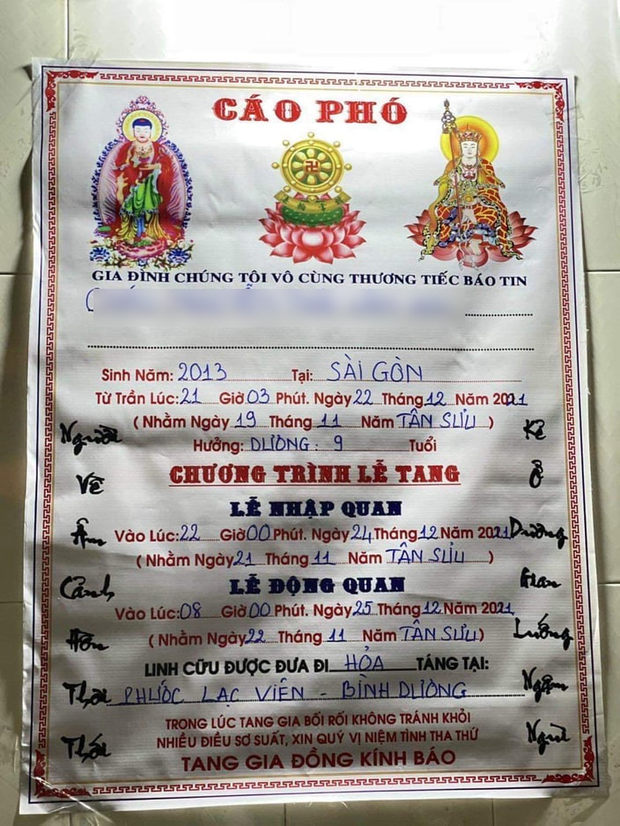 CÁO PHÓ
GIA ĐÌNH CHÚNG TÔI VÔ CÙNG THƯƠNG TIẾC BÁO TIN
Sinh Năm: 2013 Tại: SÀI GÒN
Từ Trần Lúc: 21 Giờ 03 Phút. Ngày 22 Tháng 12 Năm 2021
( Nhằm Ngày 19 Tháng 11 Năm TÂN SỬU )
Hưởng: DƯƠNG: 9 Tuổi
CHƯƠNG TRÌNH LỄ TANG
LỄ NHẬP QUAN
Vào Lúc: 22 Giờ 00 Phút. Ngày 24 Tháng 12 Năm 2021
( Nhằm Ngày 21 Tháng 11 Năm TÂN SỬU )
LỄ ĐỘNG QUAN
Vào Lúc: 08 Giờ 00 Phút. Ngày 25 Tháng 12 Năm 2021
( Nhằm Ngày 22 Tháng 11 Năm TÂN SỬU )
LINH CỮU ĐƯỢC ĐƯA ĐI HỎA TÁNG TẠI:
PHƯỚC LẠC VIÊN - BÌNH DƯƠNG
TRONG LÚC TANG GIA BỐI RỐI KHÔNG TRÁNH KHỎI
NHIỀU ĐIỀU SƠ SUẤT, XIN QUÝ VỊ NIỆM TÌNH THA THỨ
TANG GIA ĐỒNG KÍNH BÁO
Người
Về
Âm
Cảnh
Hồn
Thơi
Thới
Kẻ
Ở
Dương
Gian
Luống
Ngậm
Ngùi